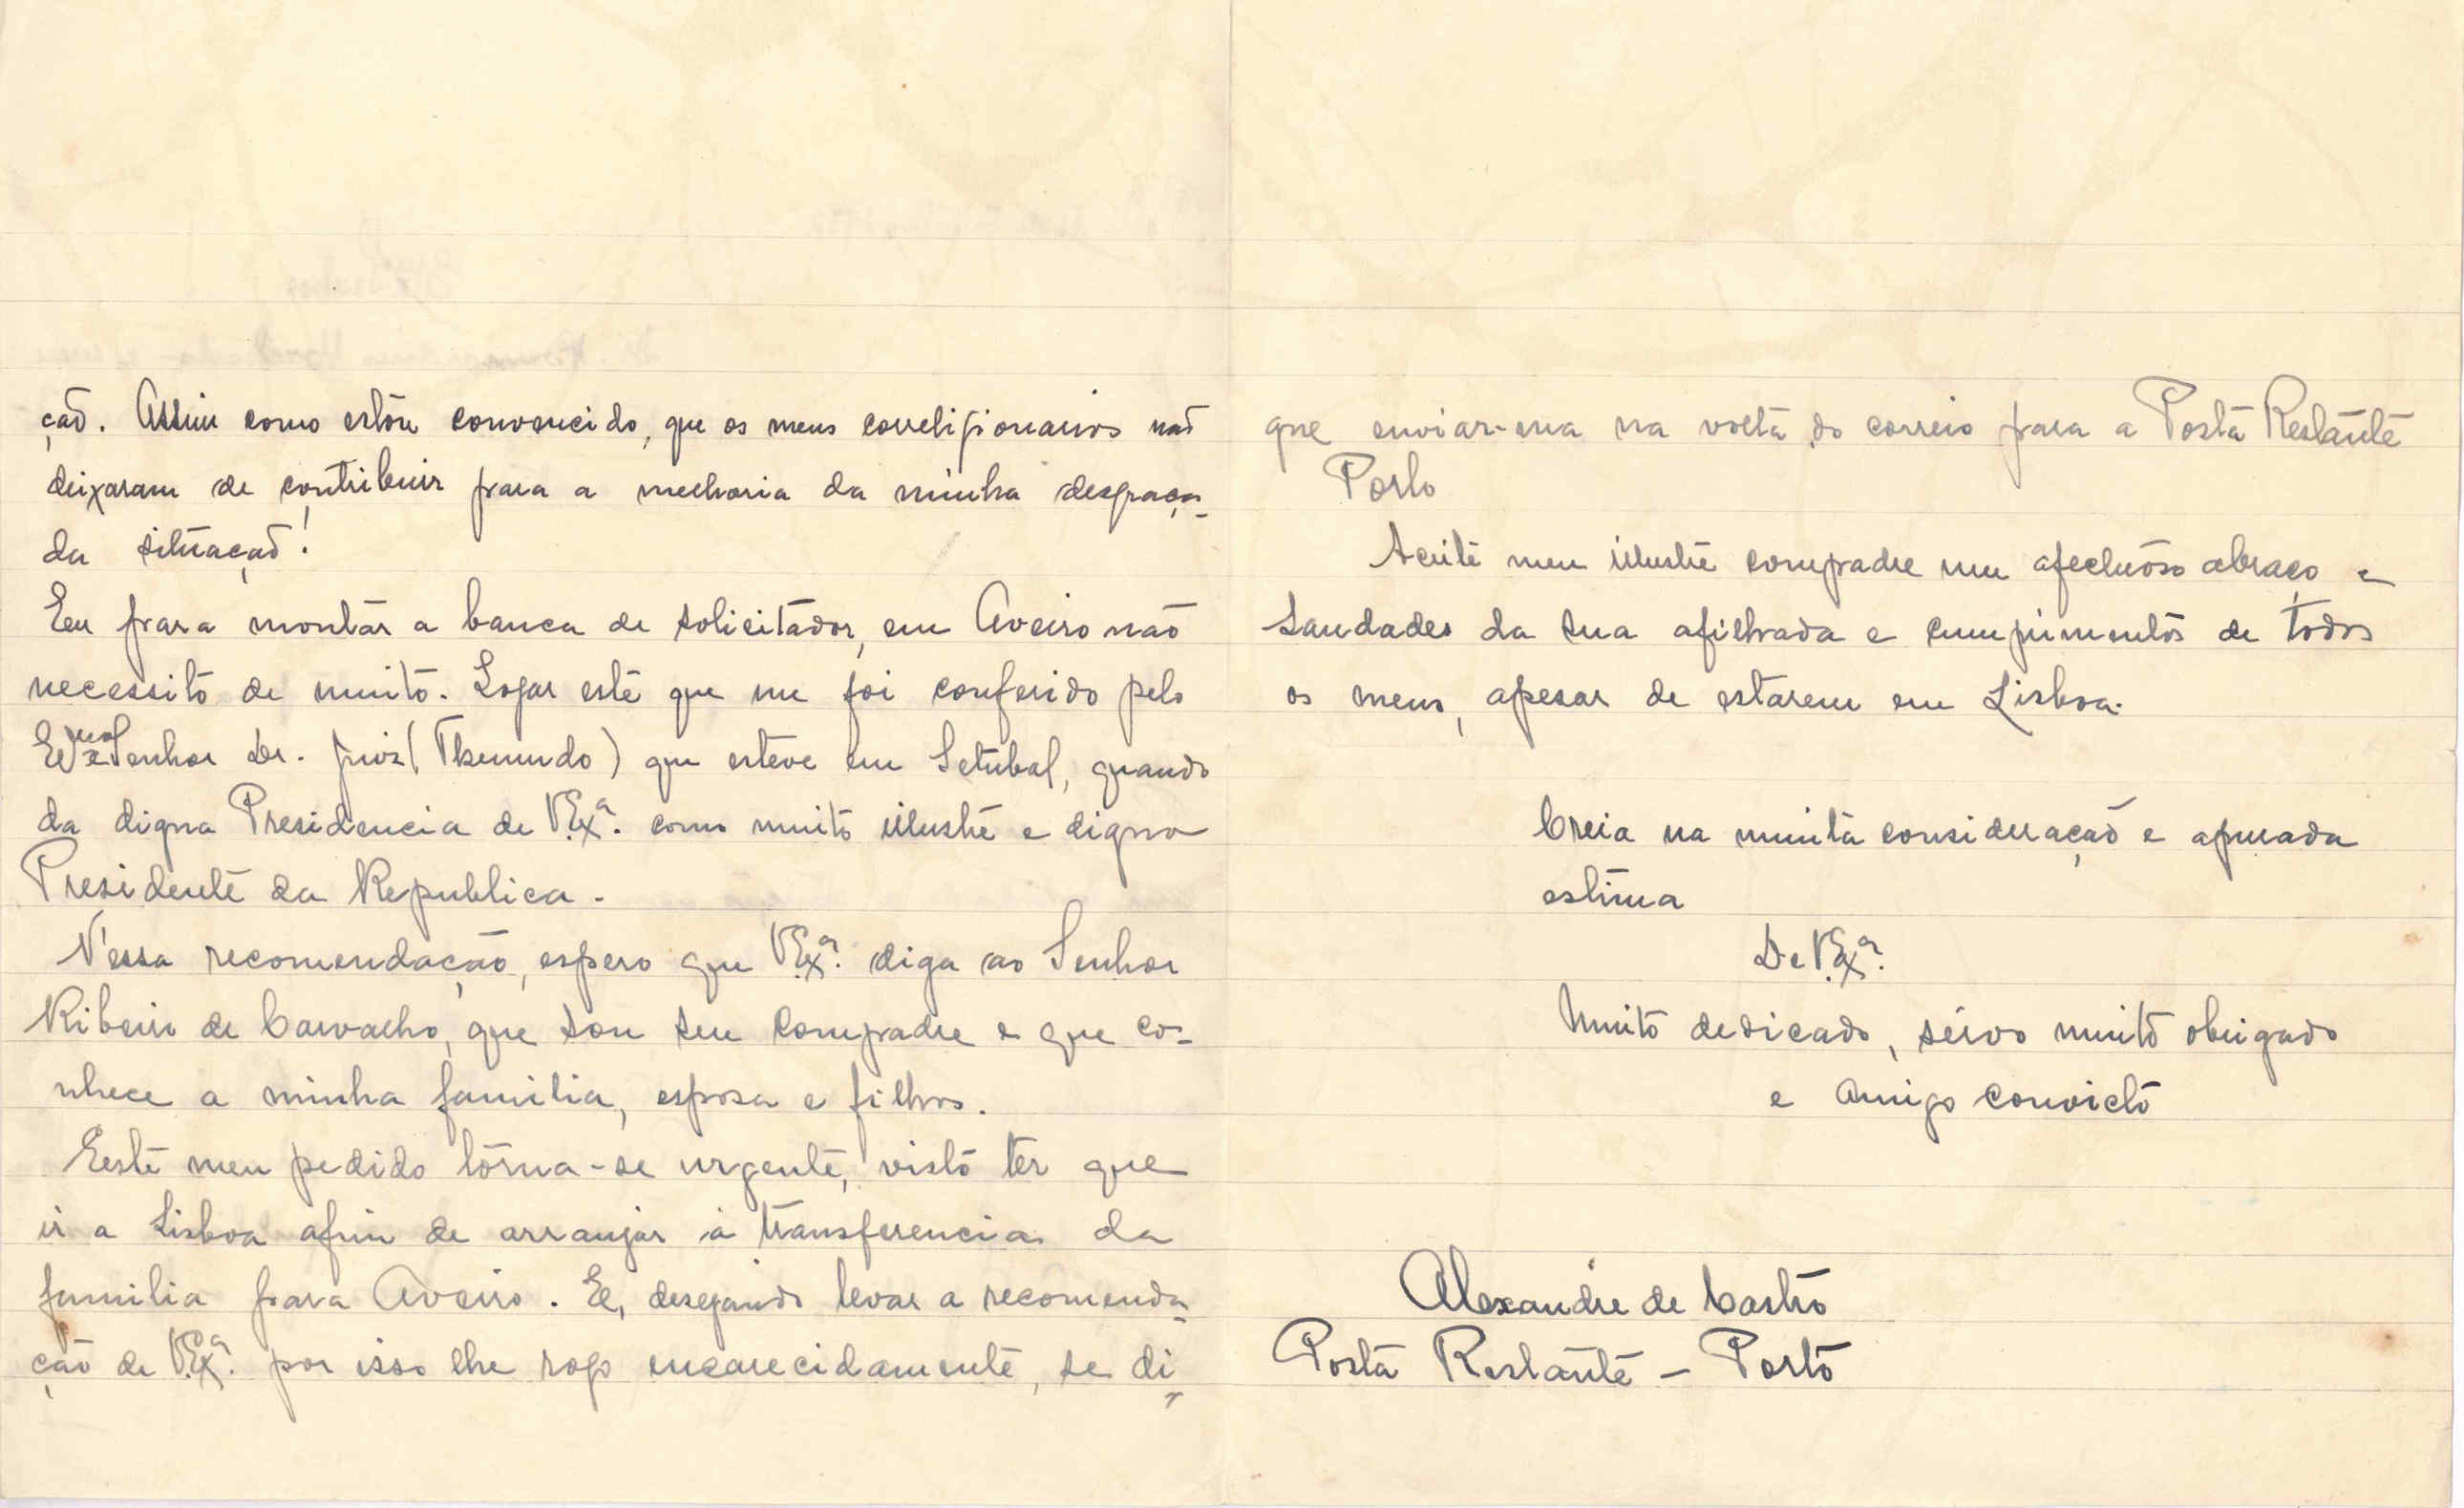 ção. Assim como estou convencido, que os meus correligionarios não
deixaram de contribuir para a melhoria da minha desgraça-
da situação!
Eu para montar a banca de solicitador, em Aveiro não
necessito de muito. Logar este que me foi conferido pelo
Exmo Senhor Dr. Juiz ( ) que esteve em Setubal, quando
da digna Presidencia de V.Exa. como muito ilustre e digno
Presidente da Republica.
N'essa recomendação, espero que V.Exa. diga ao Senhor
Ribeiro de Carvalho, que sou seu Compadre e que co-
nhece a minha familia, esposa e filhos.
Este meu pedido tórna-se urgente, visto ter que
ir a Lisboa afim de arranjar a transferencia da
familia para Aveiro. E, desejando levar a recomenda-
ção de V.Exa. por isso lhe rogo encarecidamente, se di-
que enviar-ma na volta do correio para a Posta Restante
Porto
Aceite meu ilustre compadre um afectuoso abraço e
saudades da sua afilhada e cumprimentos de todos
os meus, apesar de estarem em Lisboa.
Creia na muita consideração e apurada
estima
De V.Exa.
Muito dedicado, servo muito obrigado
e amigo convicto
Alexandre de Castro
Posta Restante - Porto